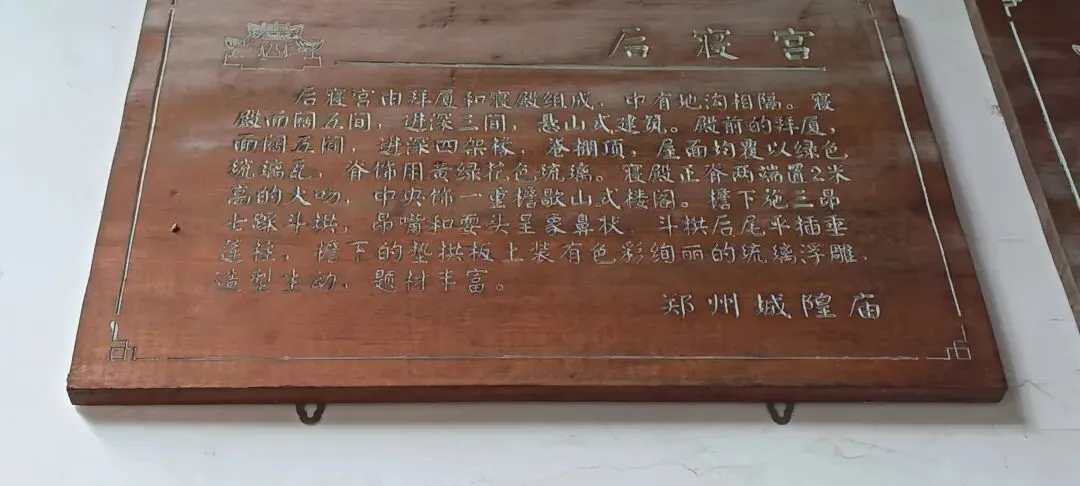 后寝宫
后寝宫由拜厦和寝殿组成，中有地沟相隔。寝
殿面阔五间，进深三间，悬山式建筑。殿前的拜厦，
面阔五间，进深四架椽，卷棚顶，屋面均覆以绿色
琉璃瓦，脊饰用黄绿花色琉璃。寝殿正脊两端置2米
高的大吻，中央饰一重檐歇山式楼阁。檐下施三昂
七踩斗拱，昂嘴和耍头呈象鼻状，斗拱后尾平插垂
莲柱，檐下的垫拱板上装有色彩绚丽的琉璃浮雕，
造型生动，题材丰富。
郑州城隍庙